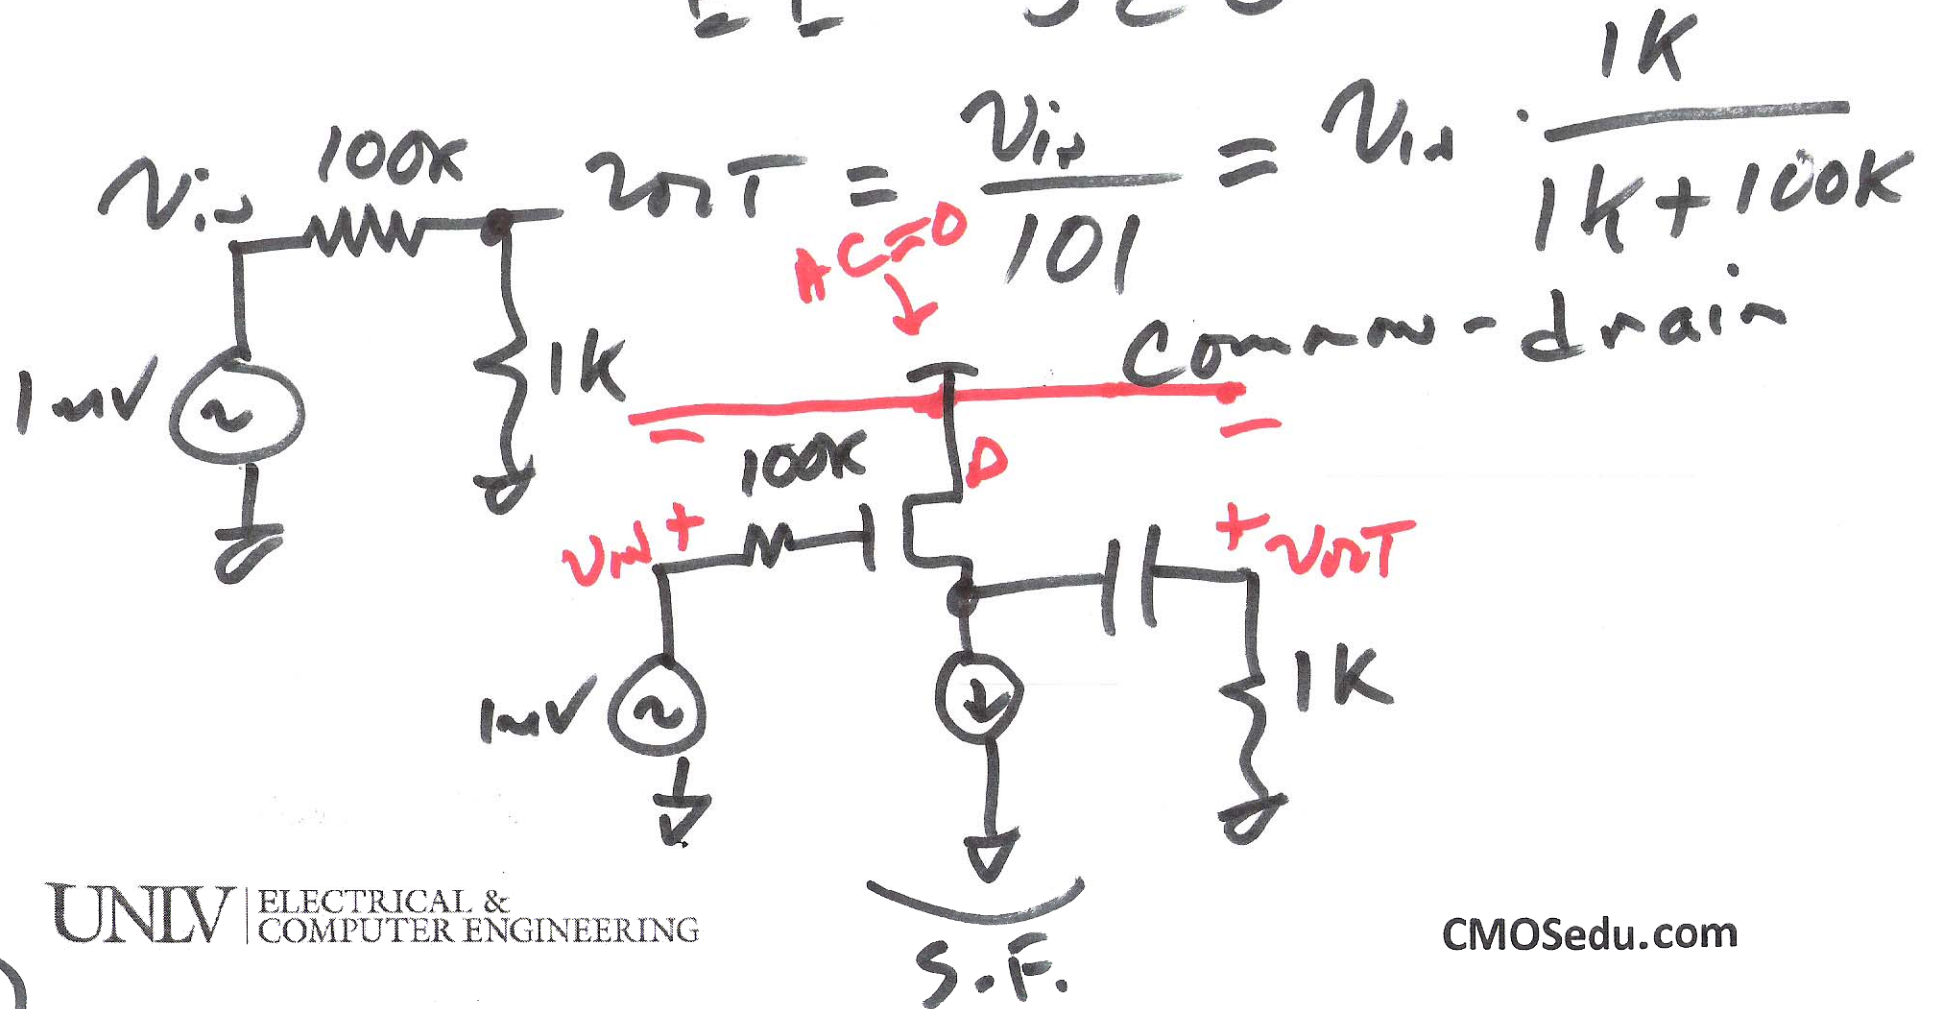 Vin 100K VOUT = Vin / 101 = Vin · 1K / (1K + 100K)
AC=0
1mV 1K Common-drain
100K D
Vin + + VOUT
1mV 1K
S.F.
UNLV ELECTRICAL &
COMPUTER ENGINEERING
CMOSedu.com